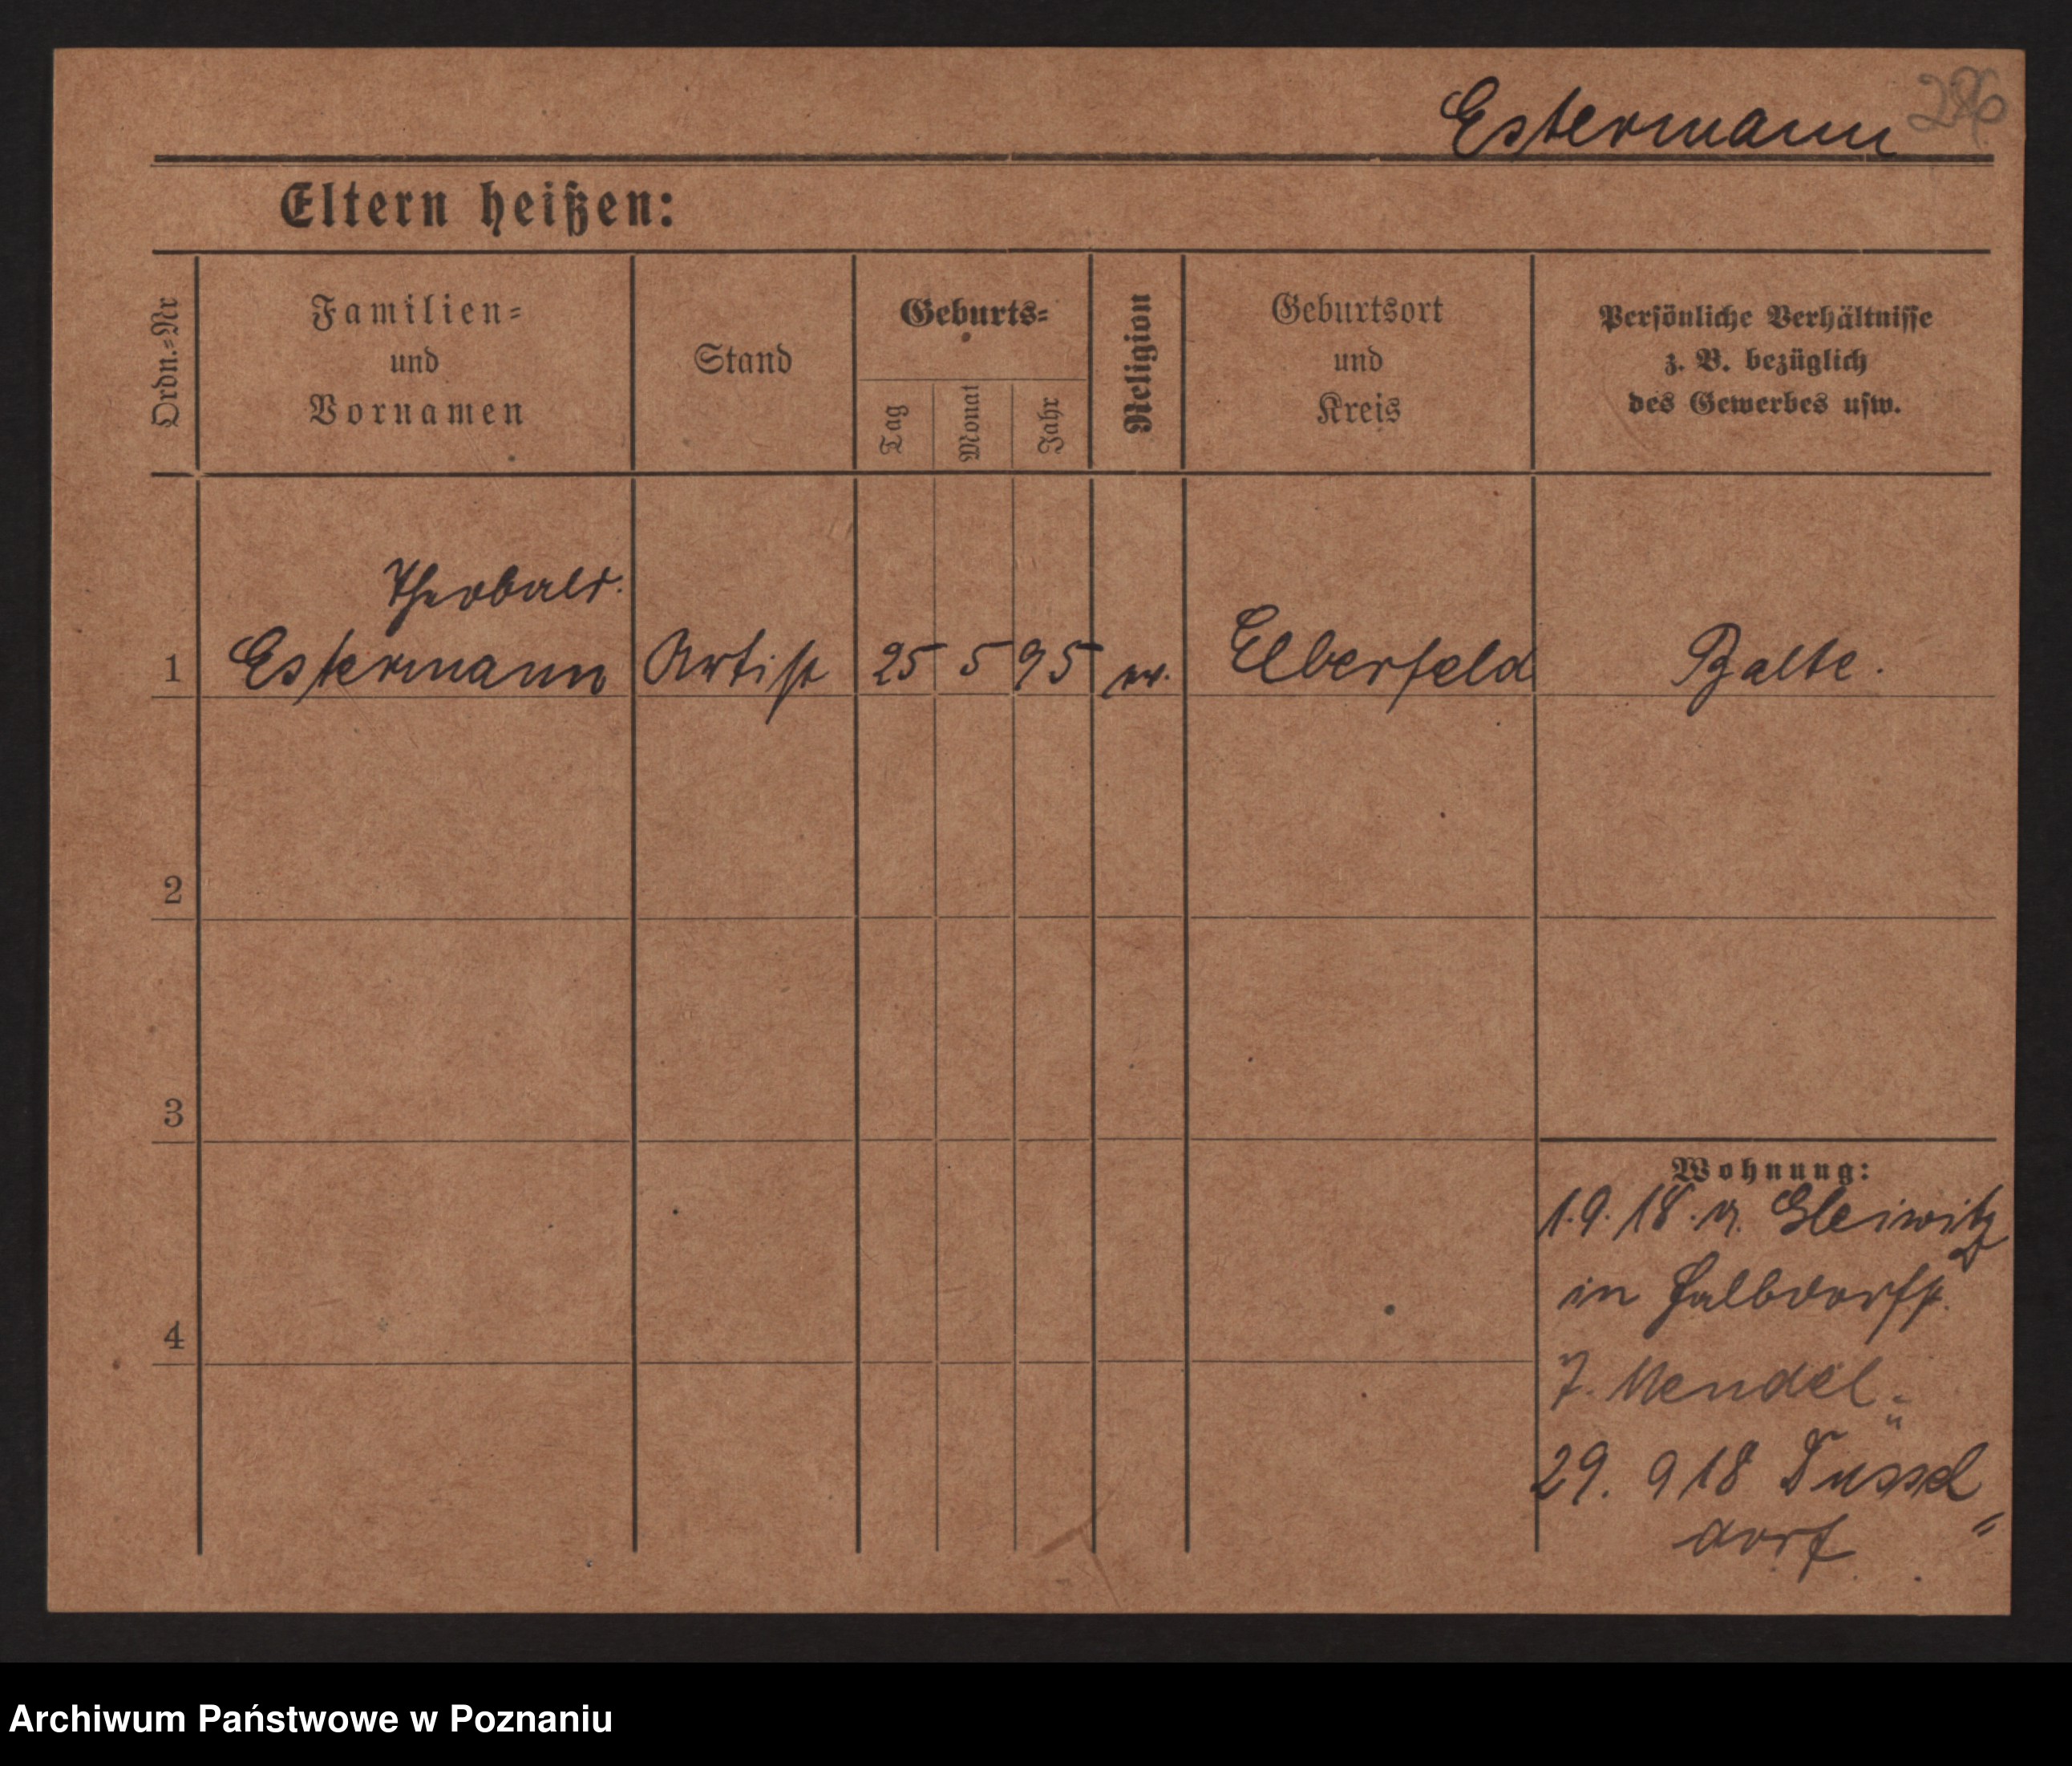 Estermann
Eltern heißen:
Ordn.=Nr
Familien=
und
Vornamen
Stand
Geburts=
Tag
Monat
Jahr
Religion
Geburtsort
und
Kreis
Persönliche Verhältnisse
z. B. bezüglich
des Gewerbes usw.
Theobald.
1 Estermann Artist 25 5 95 ev. Elberfeld
2
3
4
Wohnung:
1.9.18. v. Gleiwitz
in
7. Mendel
29. 9 18 Düssel
dorf
Archiwum Państwowe w Poznaniu